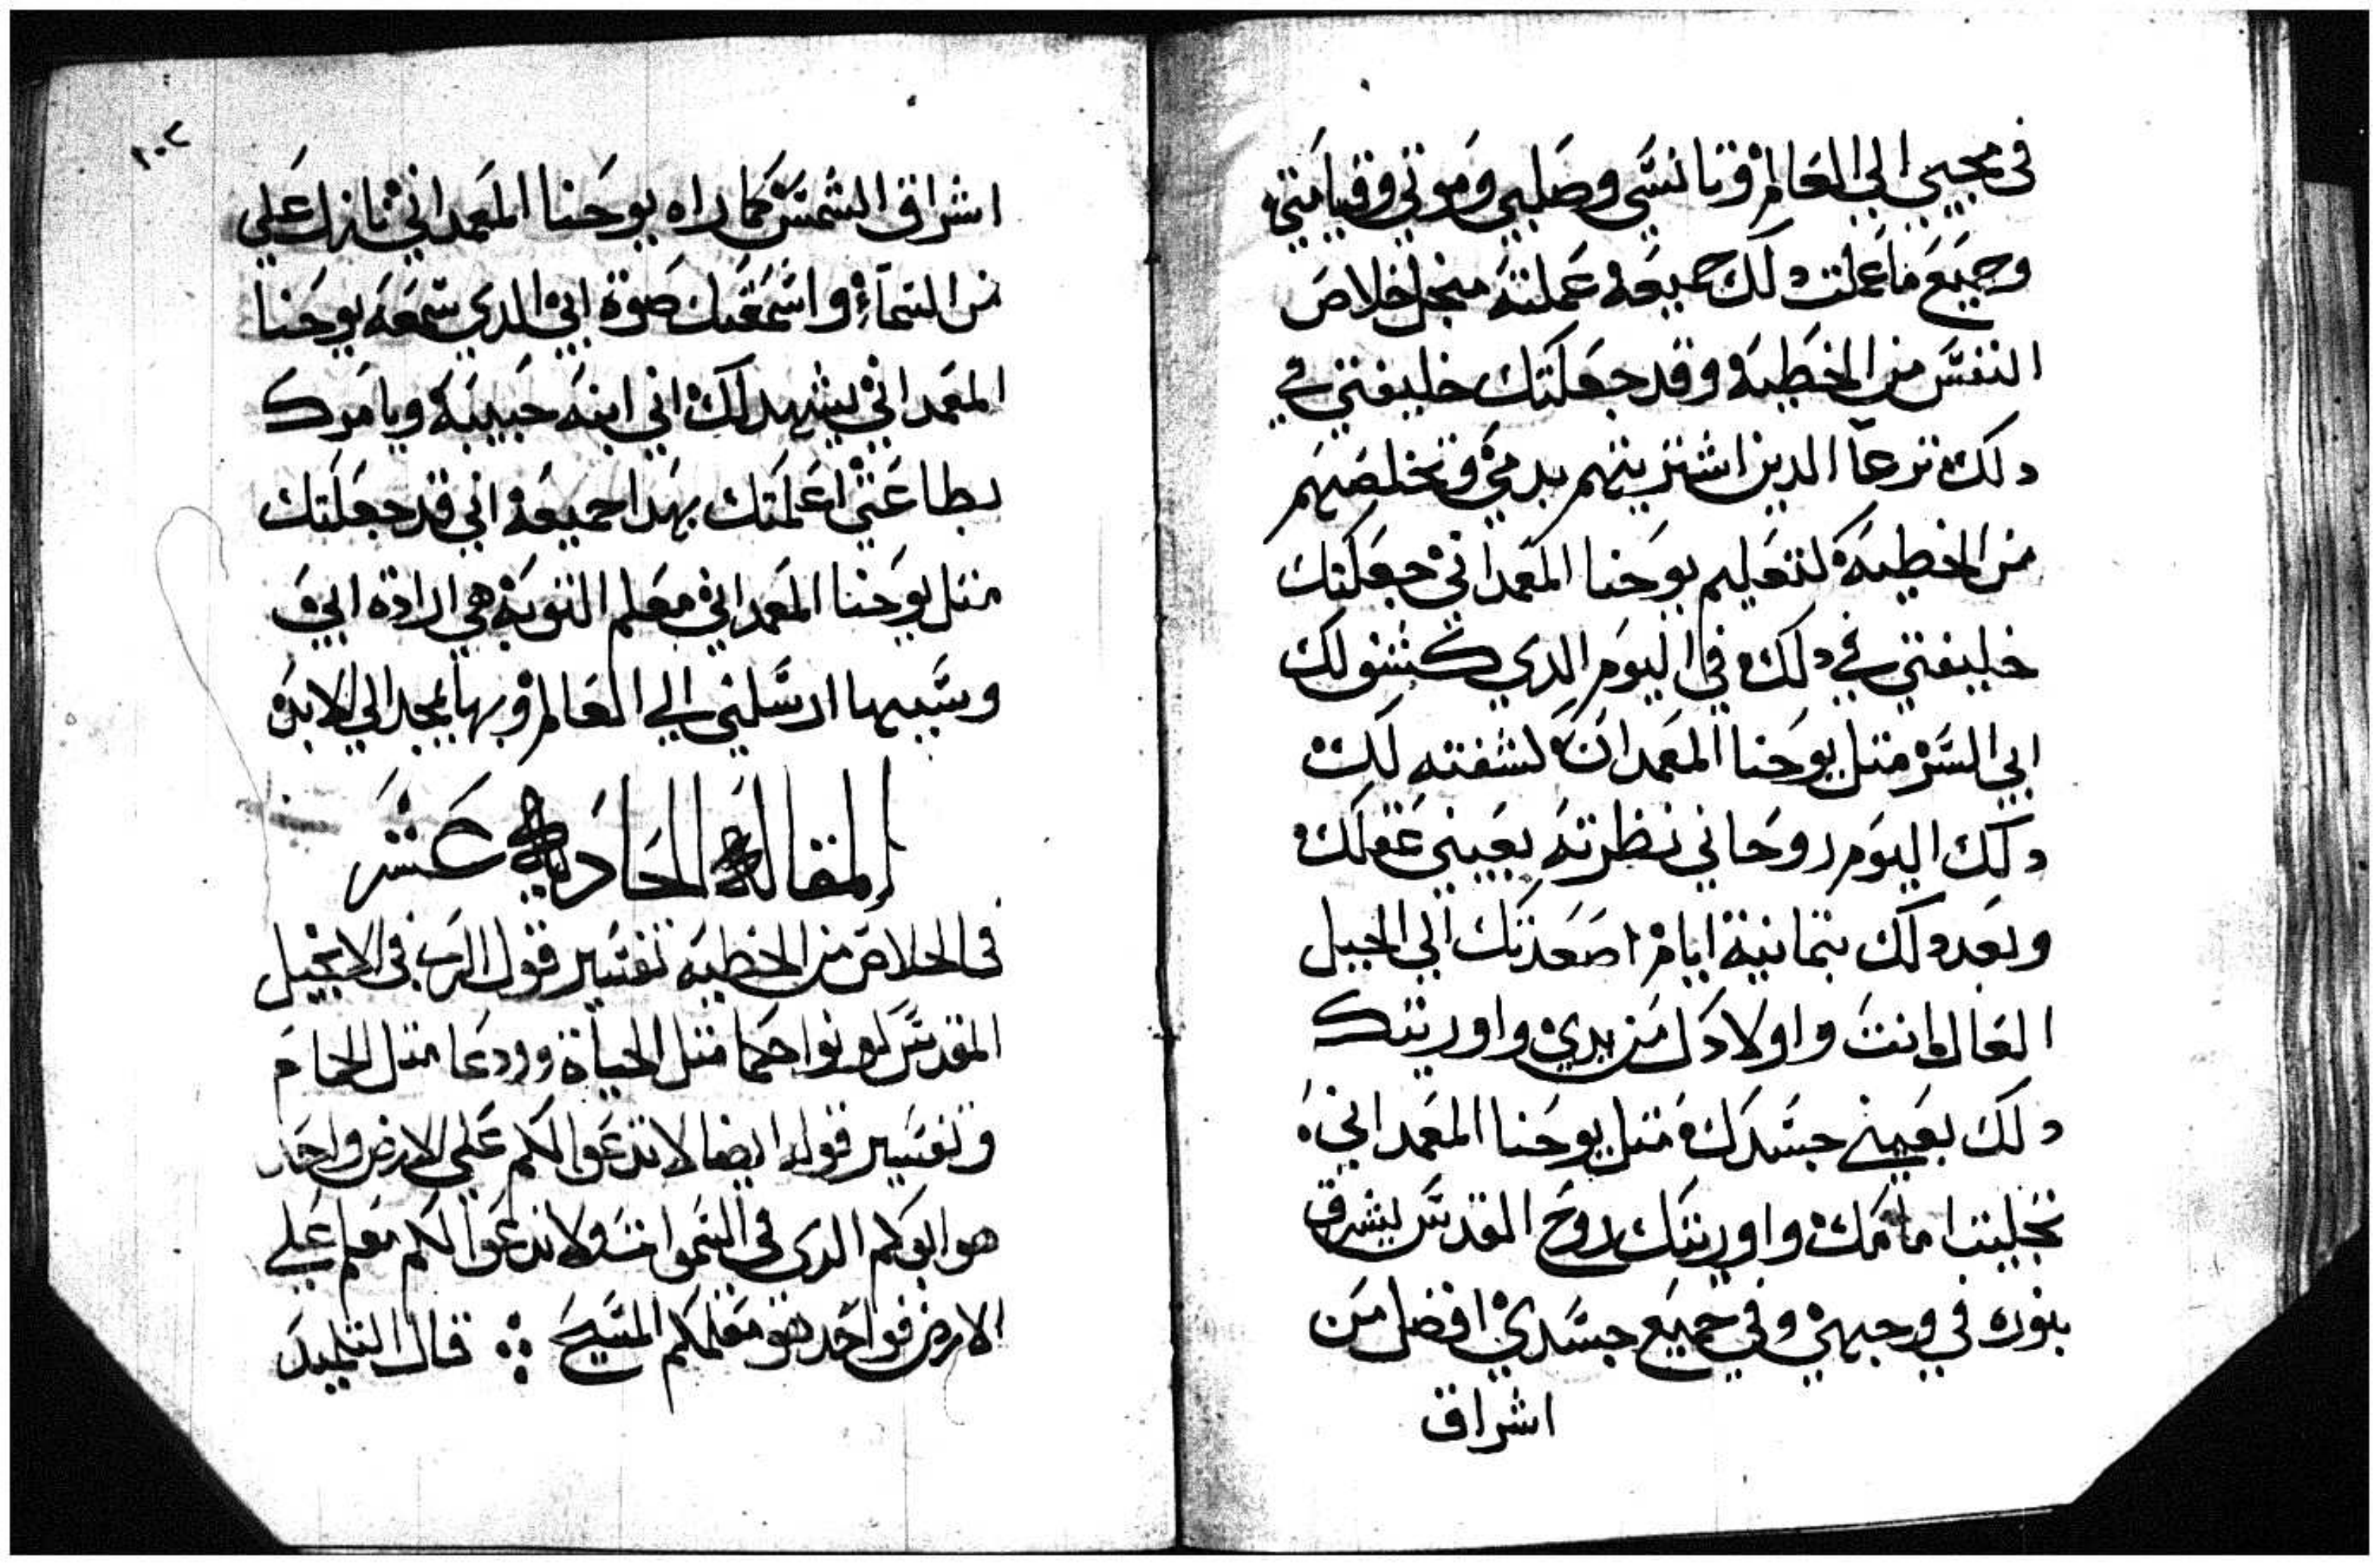 في مجيي الي العالم وتانسي وصلبي وموتي وقيامتي
وجميع ما عملت دلك جميعه عملته منجل خلاص
النفس من الخطيه وقد جعلتك خليفتي في
دلك ترعا الدين اشتريتهم بدمي وتخلصهم
من الخطيه كتعليم يوحنا المعمداني جعلتك
خليفتي في دلك في اليوم الدي كشف لك
ابي السر متل يوحنا المعمدان كشفته لك
دلك اليوم روحاني نظرته بعيني عقلك
وبعد دلك بتمانية ايام اصعدتك الي الجبل
العال انت واولاد زبدي واوريتك
دلك بعيني جسدك متل يوحنا المعمداني
تجليت امامك واوريتك روح القدس يشرق
بنوره في وجهي وفي جميع جسدي افضل من
اشراق
١٠٢
اشراق الشمس كما راه يوحنا المعمداني نازل علي
من السماء واسمعتك صوة ابي الدي سمعه يوحنا
المعمداني يشهد لك اني ابنه حبيبه ويامرك
بطاعتي اعلمتك بهدا جميعه اني قد جعلتك
متل يوحنا المعمداني معلم التوبه هي ارادة ابي
وبسببها ارسلني الي العالم وبها يمجد الي الابد
المقالة الحادية عشر
في الخلاص من الخطيه تفسير قول الرب في الانجيل
المقدس كونوا حكما متل الحياة وودعا متل الحمام
وتفسير قوله ايضا لا تدعوا لكم علي الارض واحد
هو ابوكم الدي في السموات ولا تدعوا لكم معلم علي
الارض فواحد هو معلمكم المسيح ⁘ قال التلميد